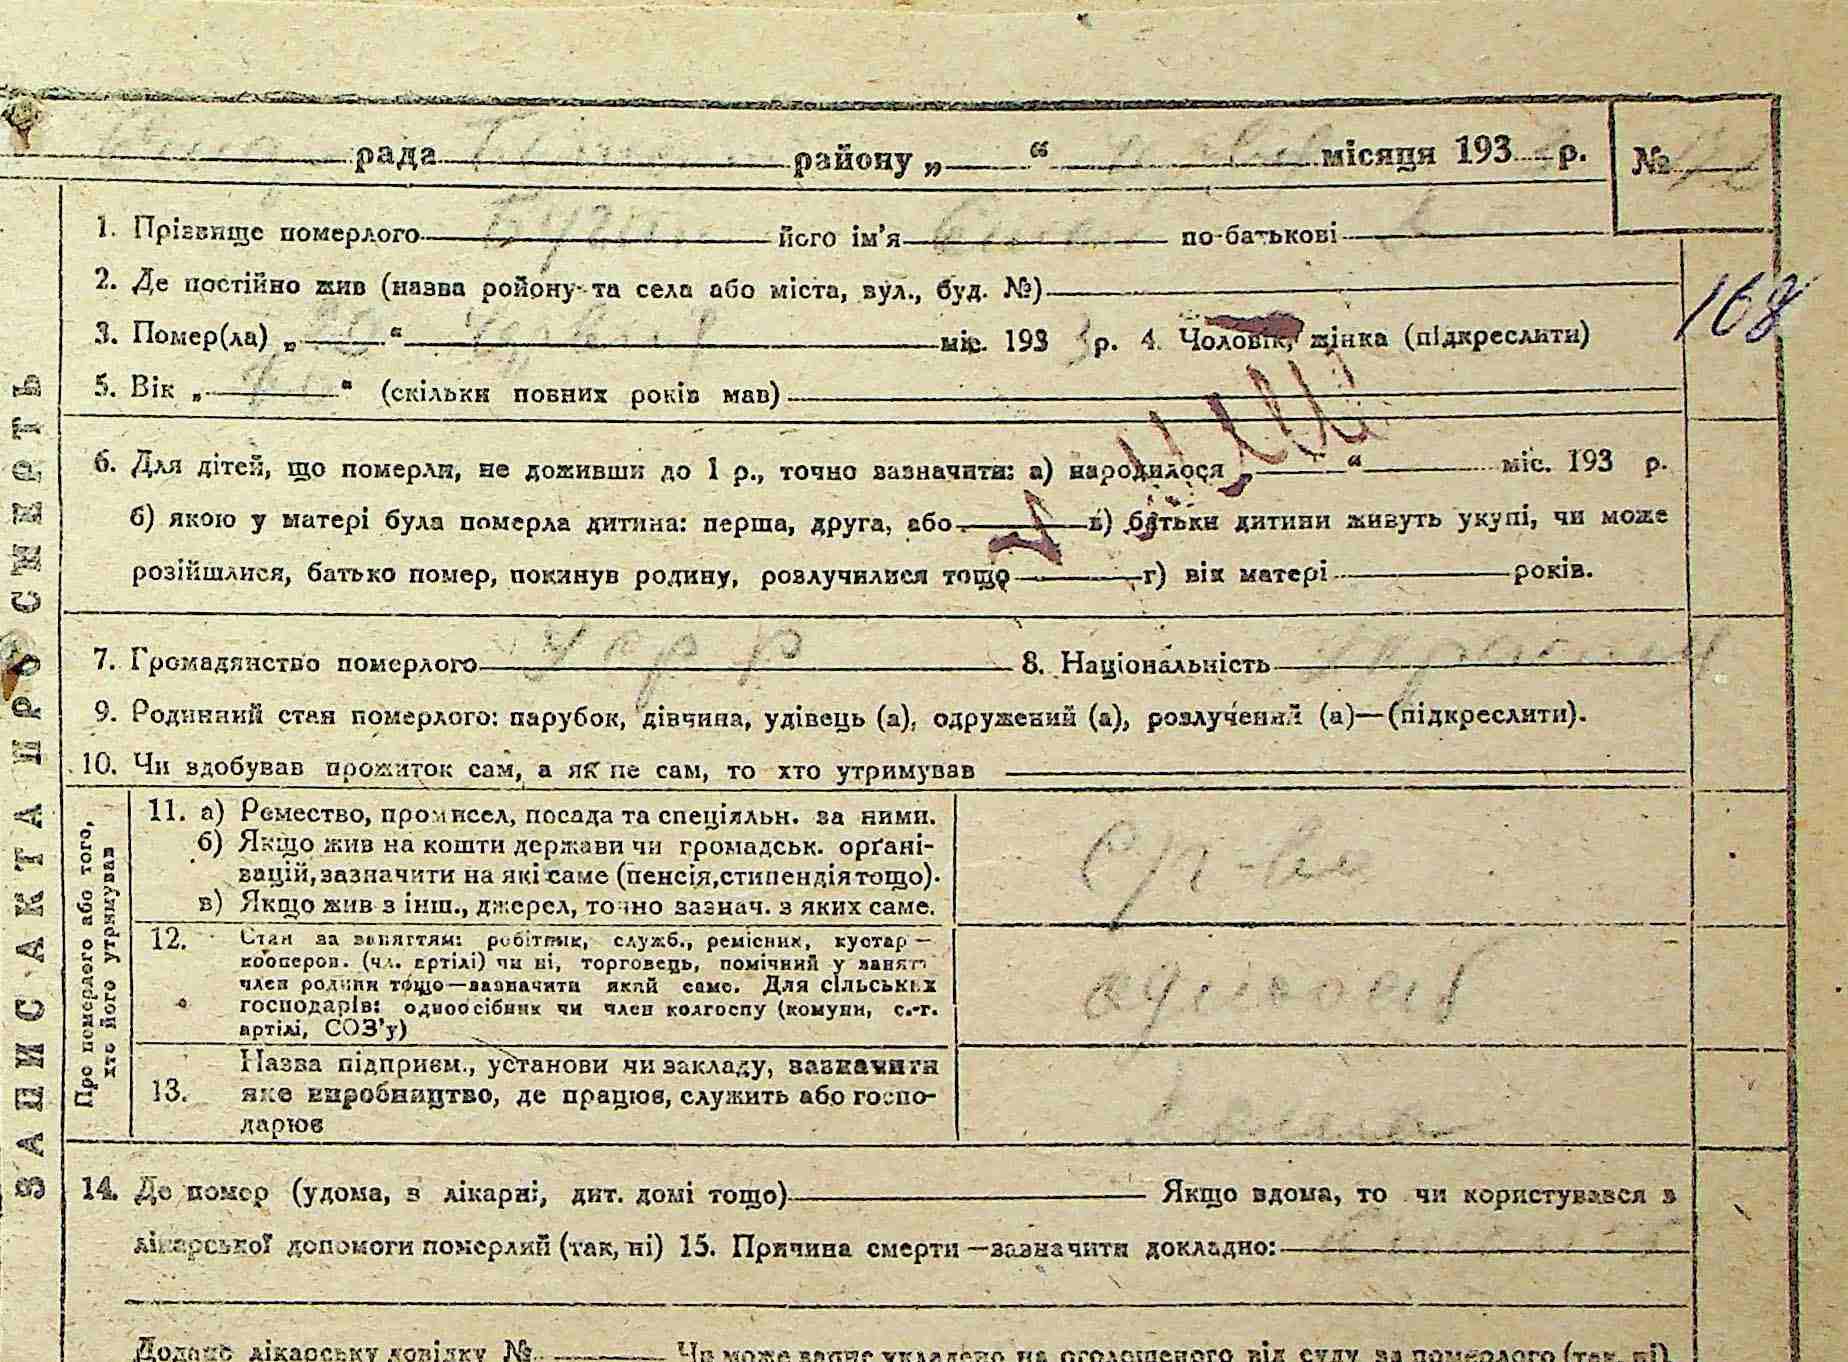 рада району „ “ місяця 193 р. №
1. Прізвище померлого його ім'я по-батькові
2. Де постійно жив (назва ройону та села або міста, вул., буд. №)
168
3. Помер(ла) „20“ червня міс. 1933 р. 4. Чоловік, жінка (підкреслити)
5. Вік „ “ (скільки повних років мав)
6. Для дітей, що померли, не доживши до 1 р., точно зазначити: а) народилося „ “ міс. 193 р.
б) якою у матері була померла дитина: перша, друга, або в) батьки дитини живуть укупі, чи може
розійшлися, батько помер, покинув родину, розлучилися тощо г) вік матері років.
7. Громадянство померлого УСРР 8. Національність
9. Родинний стан померлого: парубок, дівчина, удівець (а), одружений (а), розлучений (а)—(підкреслити).
10. Чи здобував прожиток сам, а як не сам, то хто утримував
ЗАПИС АКТА ПРО СМЕРТЬ
Про померлого або того,
хто його утримував
11. а) Ремество, промисел, посада та спеціяльн. за ними.
б) Якщо жив на кошти держави чи громадськ. орґані-
зацій, зазначити на які саме (пенсія, стипендія тощо).
в) Якщо жив з інш., джерел, точно зазнач. з яких саме.
12. Стан за заняттям: робітник, служб., ремісник, кустар —
кооперов. (чл. артілі) чи ні, торговець, помічний у занят.
член родини тощо—зазначити який саме. Для сільських
господарів: одноосібник чи член колгоспу (комуни, с.-г.
артілі, СОЗ'у)
13. Назва підприєм., установи чи закладу, зазначити
яке виробництво, де працює, служить або госпо-
дарює
14. Де помер (удома, в лікарні, дит. домі тощо) Якщо вдома, то чи користувався з
лікарської допомоги померлий (так, ні) 15. Причина смерти—зазначити докладно:
Додано лікарську довідку № Чи може запис укладено на оголошеного від суду за померлого (так, ні)